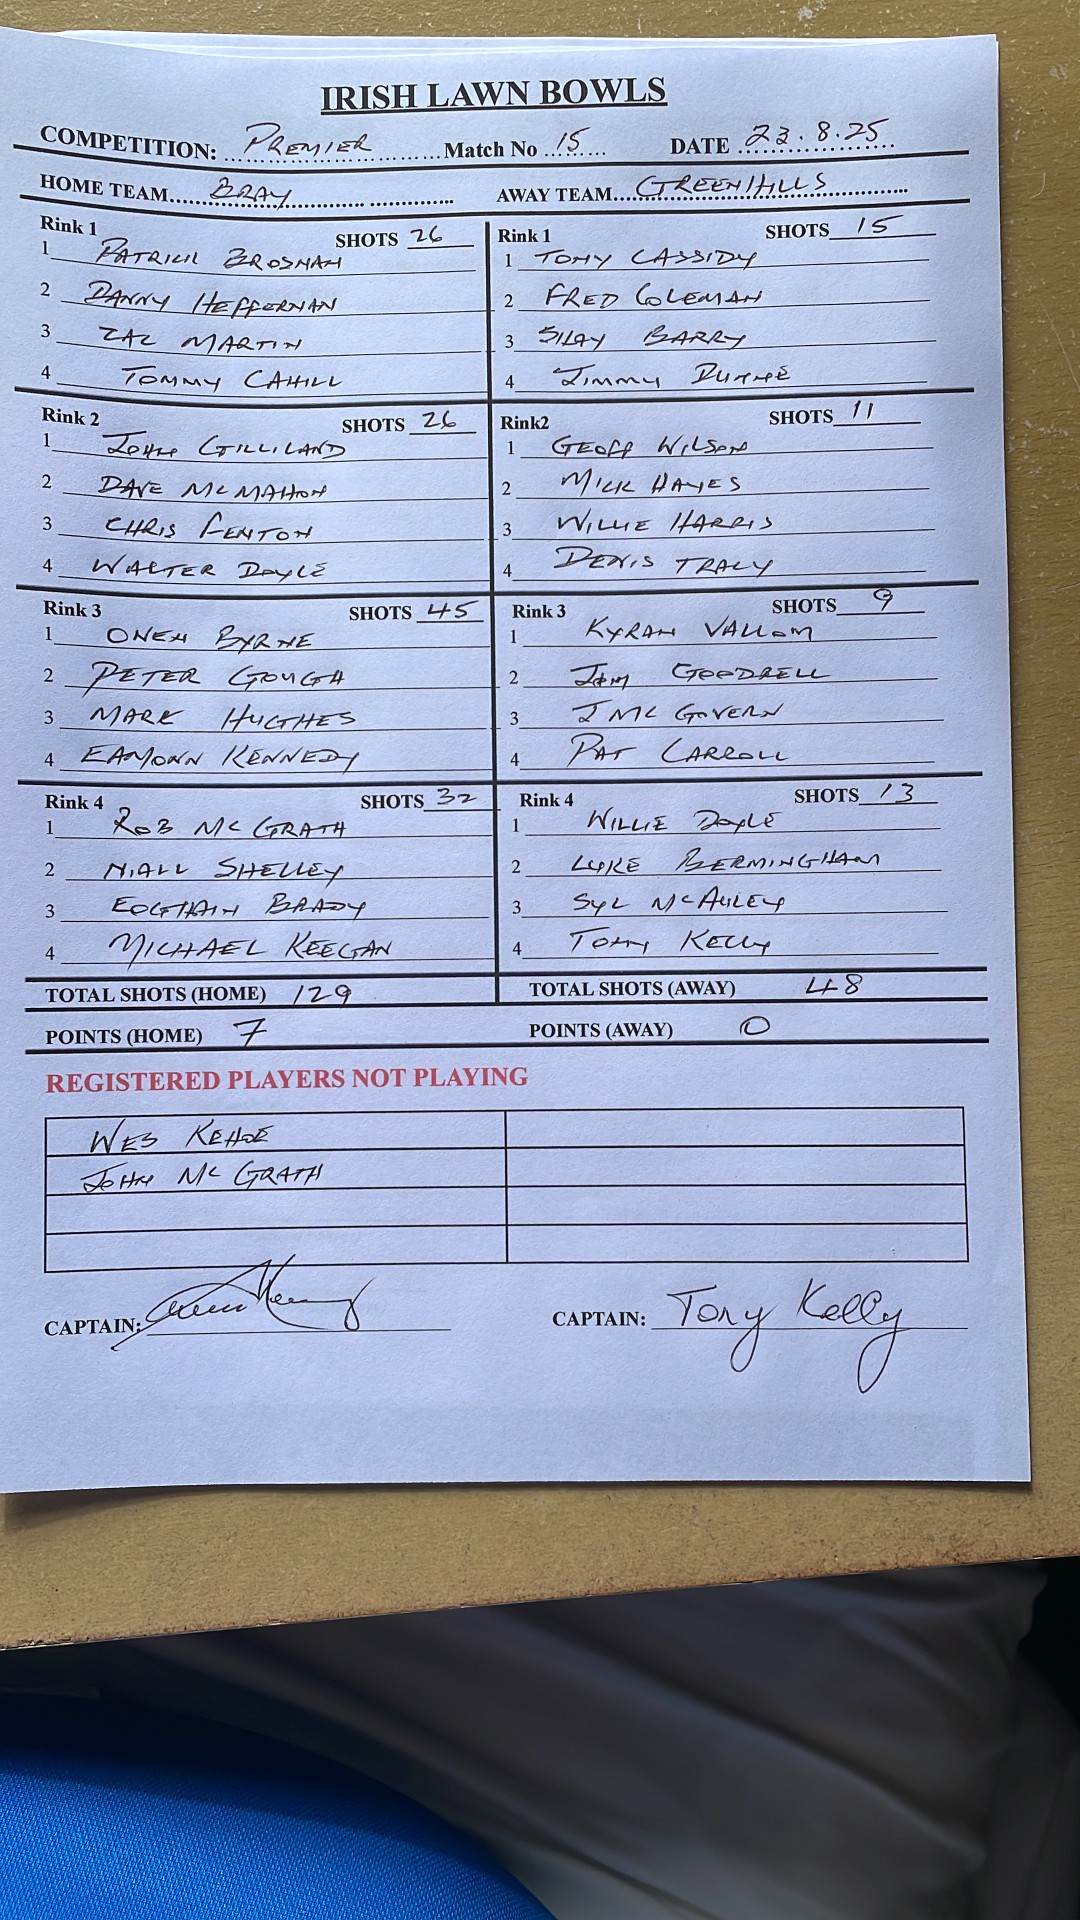 IRISH LAWN BOWLS
COMPETITION: PREMIER Match No 15 DATE 23.8.25
HOME TEAM BRAY AWAY TEAM GREENHILLS
Rink 1 SHOTS 26
1 PATRICK BROSNAN
2 DANNY HEFFERNAN
3 ZAC MARTIN
4 TOMMY CAHILL
Rink 1 SHOTS 15
1 TONY CASSIDY
2 FRED COLEMAN
3 SHAY BARRY
4 JIMMY DUNNE
Rink 2 SHOTS 26
1 JOHN GILLILAND
2 DAVE MCMAHON
3 CHRIS FENTON
4 WALTER DOYLE
Rink2 SHOTS 11
1 GEOFF WILSON
2 MICK HAYES
3 WILLIE HARRIS
4 DENIS TRACY
Rink 3 SHOTS 45
1 OWEN BYRNE
2 PETER GOUGH
3 MARK HUGHES
4 EAMONN KENNEDY
Rink 3 SHOTS 9
1 KYRAN VALLOM
2 GOODRELL
3 J MC GOVERN
4 PAT CARROLL
Rink 4 SHOTS 32
1 ROB MC GRATH
2 NIALL SHELLEY
3 EOGHAIN BRADY
4 MICHAEL KEEGAN
Rink 4 SHOTS 13
1 WILLIE DOYLE
2 LUKE BERMINGHAM
3 SYL MCAULEY
4 TONY KELLY
TOTAL SHOTS (HOME) 129 TOTAL SHOTS (AWAY) 48
POINTS (HOME) 7 POINTS (AWAY) 0
REGISTERED PLAYERS NOT PLAYING
WES KEHOE
JOHN MC GRATH
CAPTAIN: CAPTAIN: Tony Kelly